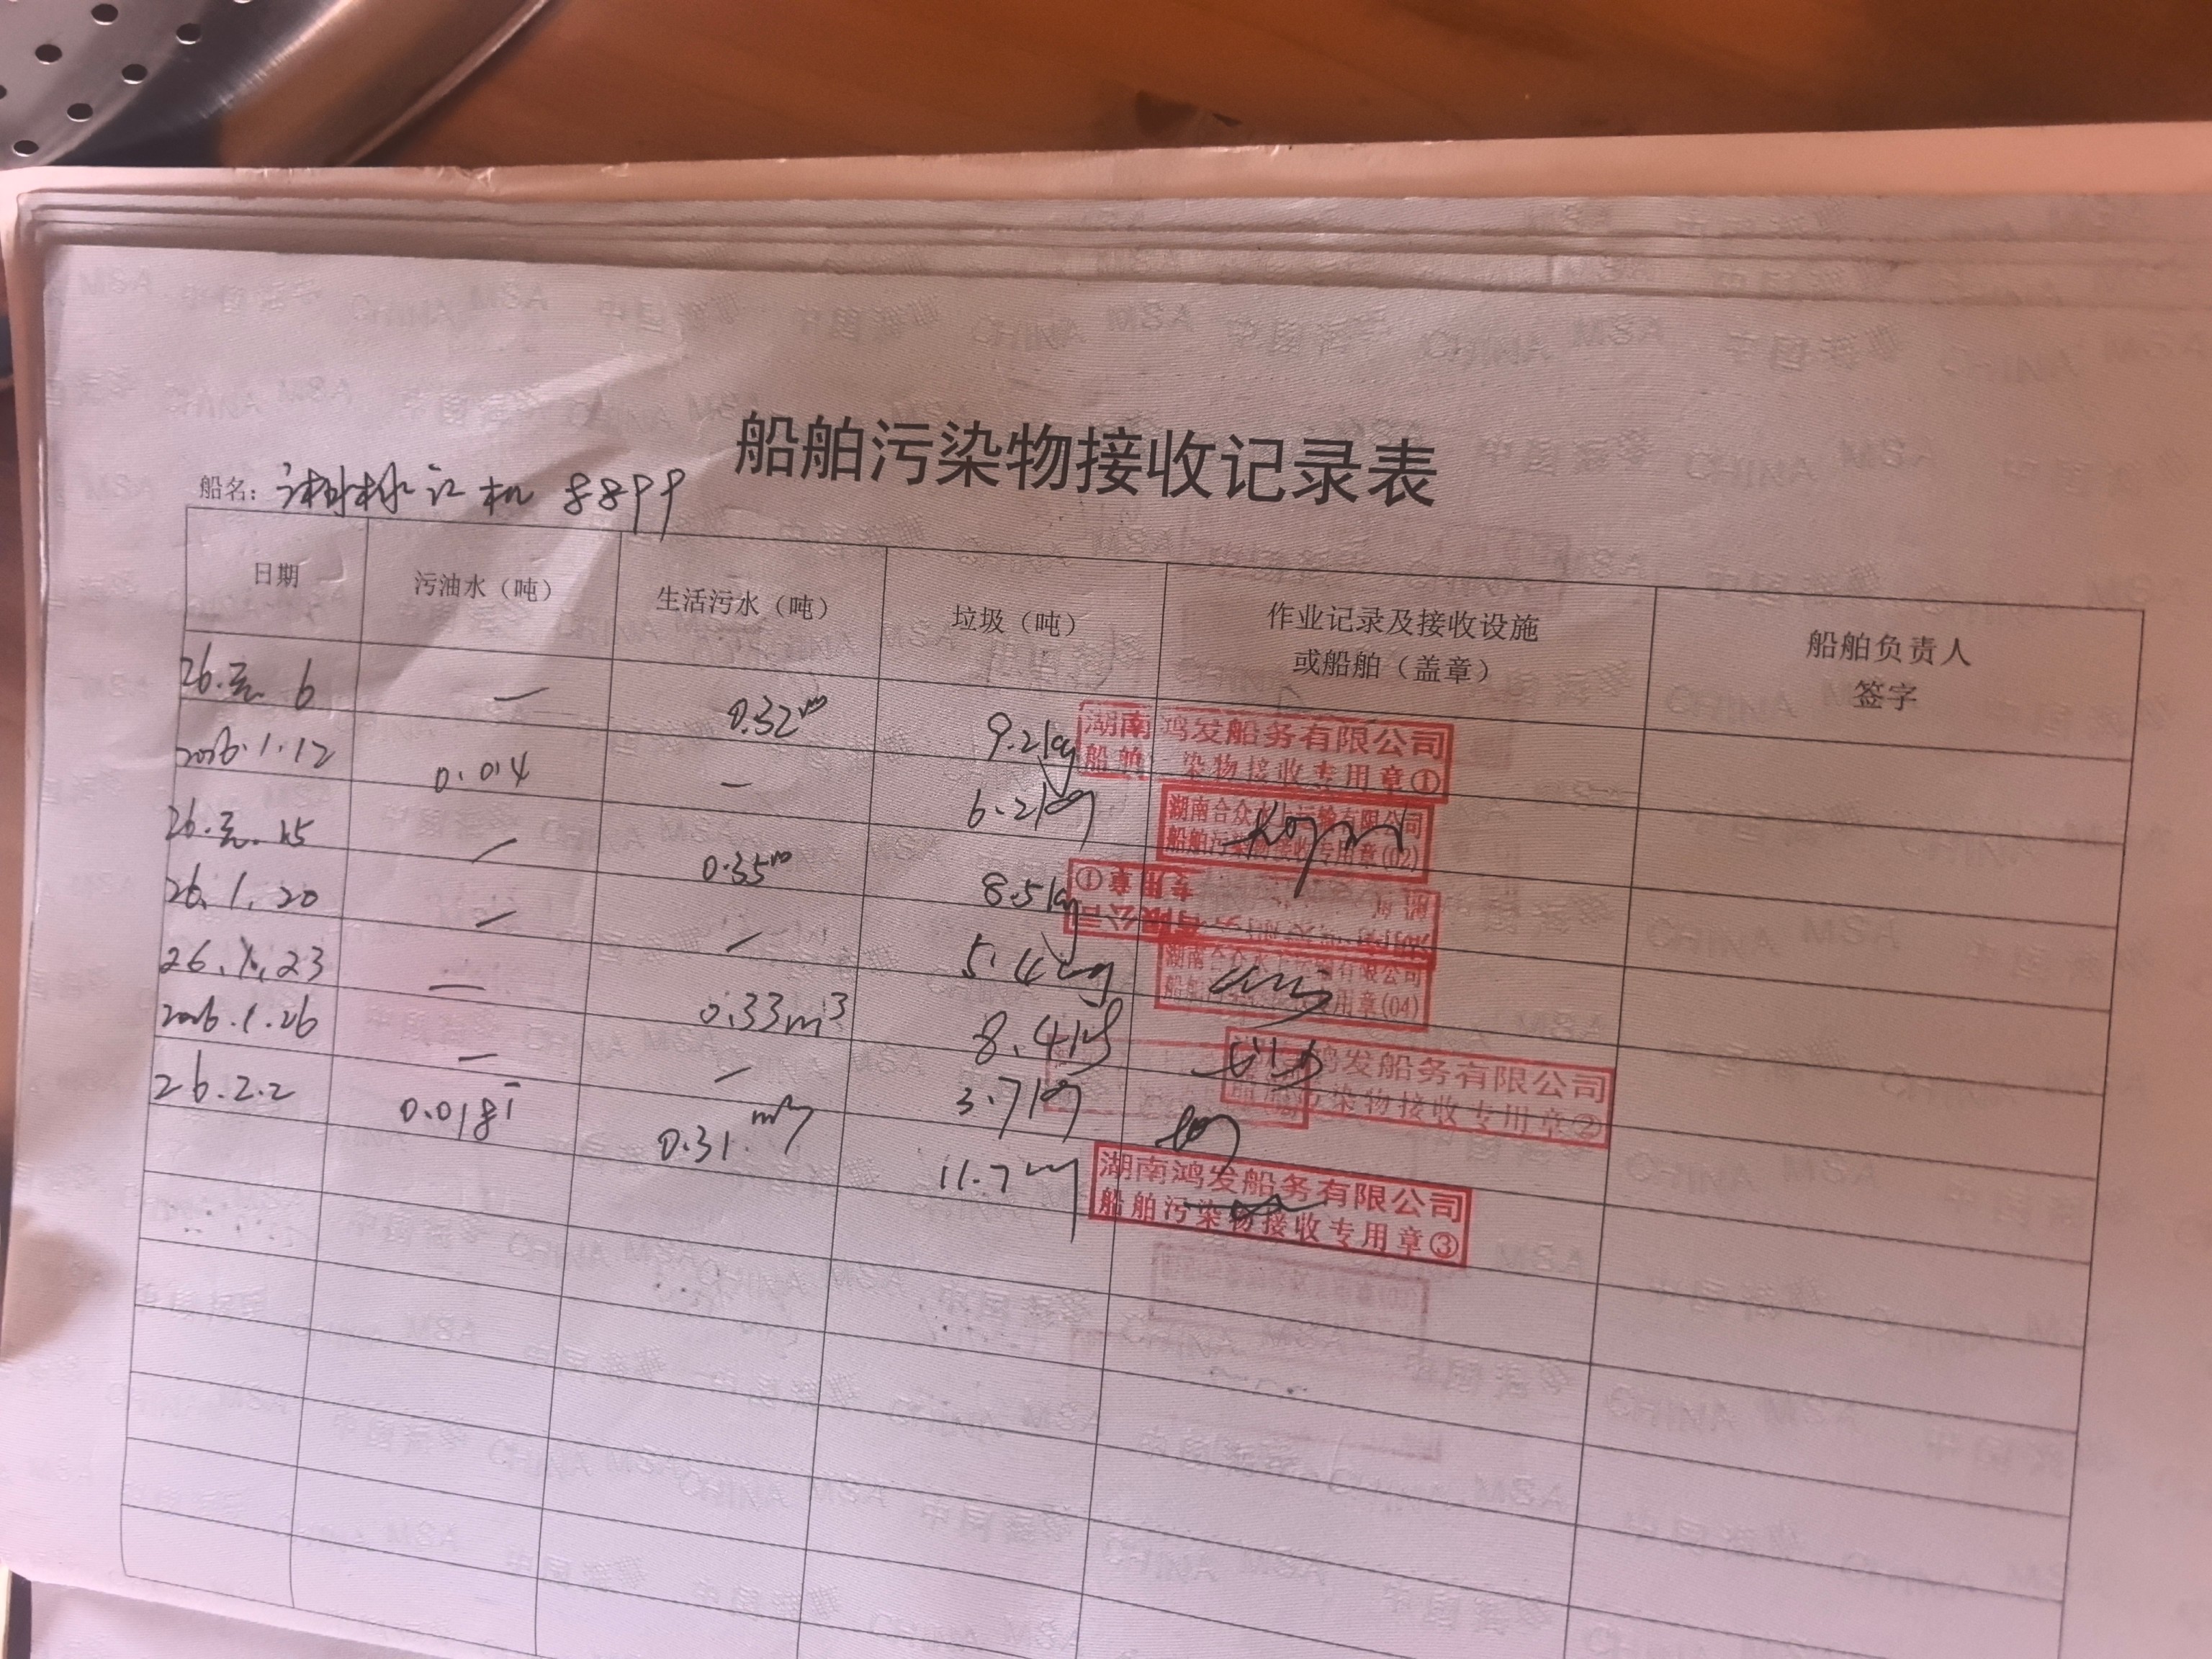 船舶污染物接收记录表
船名: 机 8899
日期 污油水（吨） 生活污水（吨） 垃圾（吨） 作业记录及接收设施或船舶（盖章） 船舶负责人签字
26.元.6 — 0.32m 9.2kg 湖南鸿发船务有限公司
船舶 染物接收专用章①
2026.1.12 0.04 — 6.2kg 湖南合众水上运输有限公司
船舶污染物接收专用章(02)
26.元.15 — 0.35m 8.5kg 专用章①
有限公司
26.1.20 — — 5.4kg 湖南合众水上运输有限公司
船舶 专用章(04)
26.1.23 — 0.33m³ 8.4kg 鸿发船务有限公司
船舶污染物接收专用章②
2026.1.26 — — 3.7kg
26.2.2 0.018 0.31 11.7kg 湖南鸿发船务有限公司
船舶污染物接收专用章③
中国海事 CHINA MSA